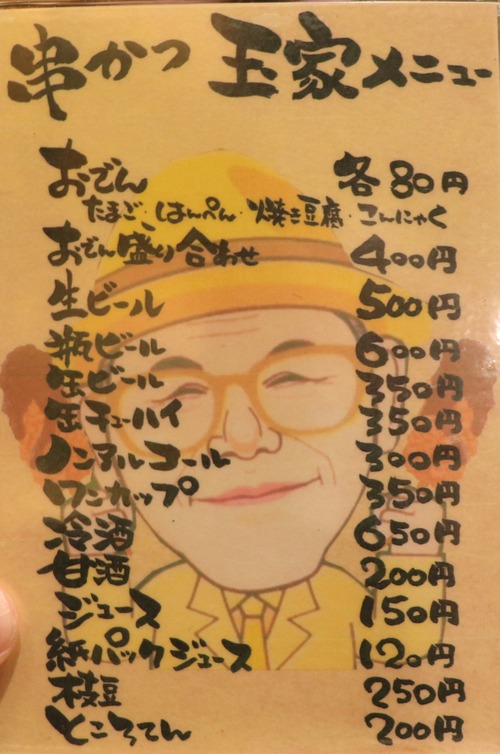 串かつ 玉家 メニュー
おでん 各80円
たまご・はんぺん・焼き豆腐・こんにゃく
おでん盛り合わせ 400円
生ビール 500円
瓶ビール 600円
缶ビール 350円
缶チューハイ 350円
ノンアルコール 300円
ワンカップ 350円
冷酒 650円
甘酒 200円
ジュース 150円
紙パックジュース 120円
枝豆 250円
ところてん 200円